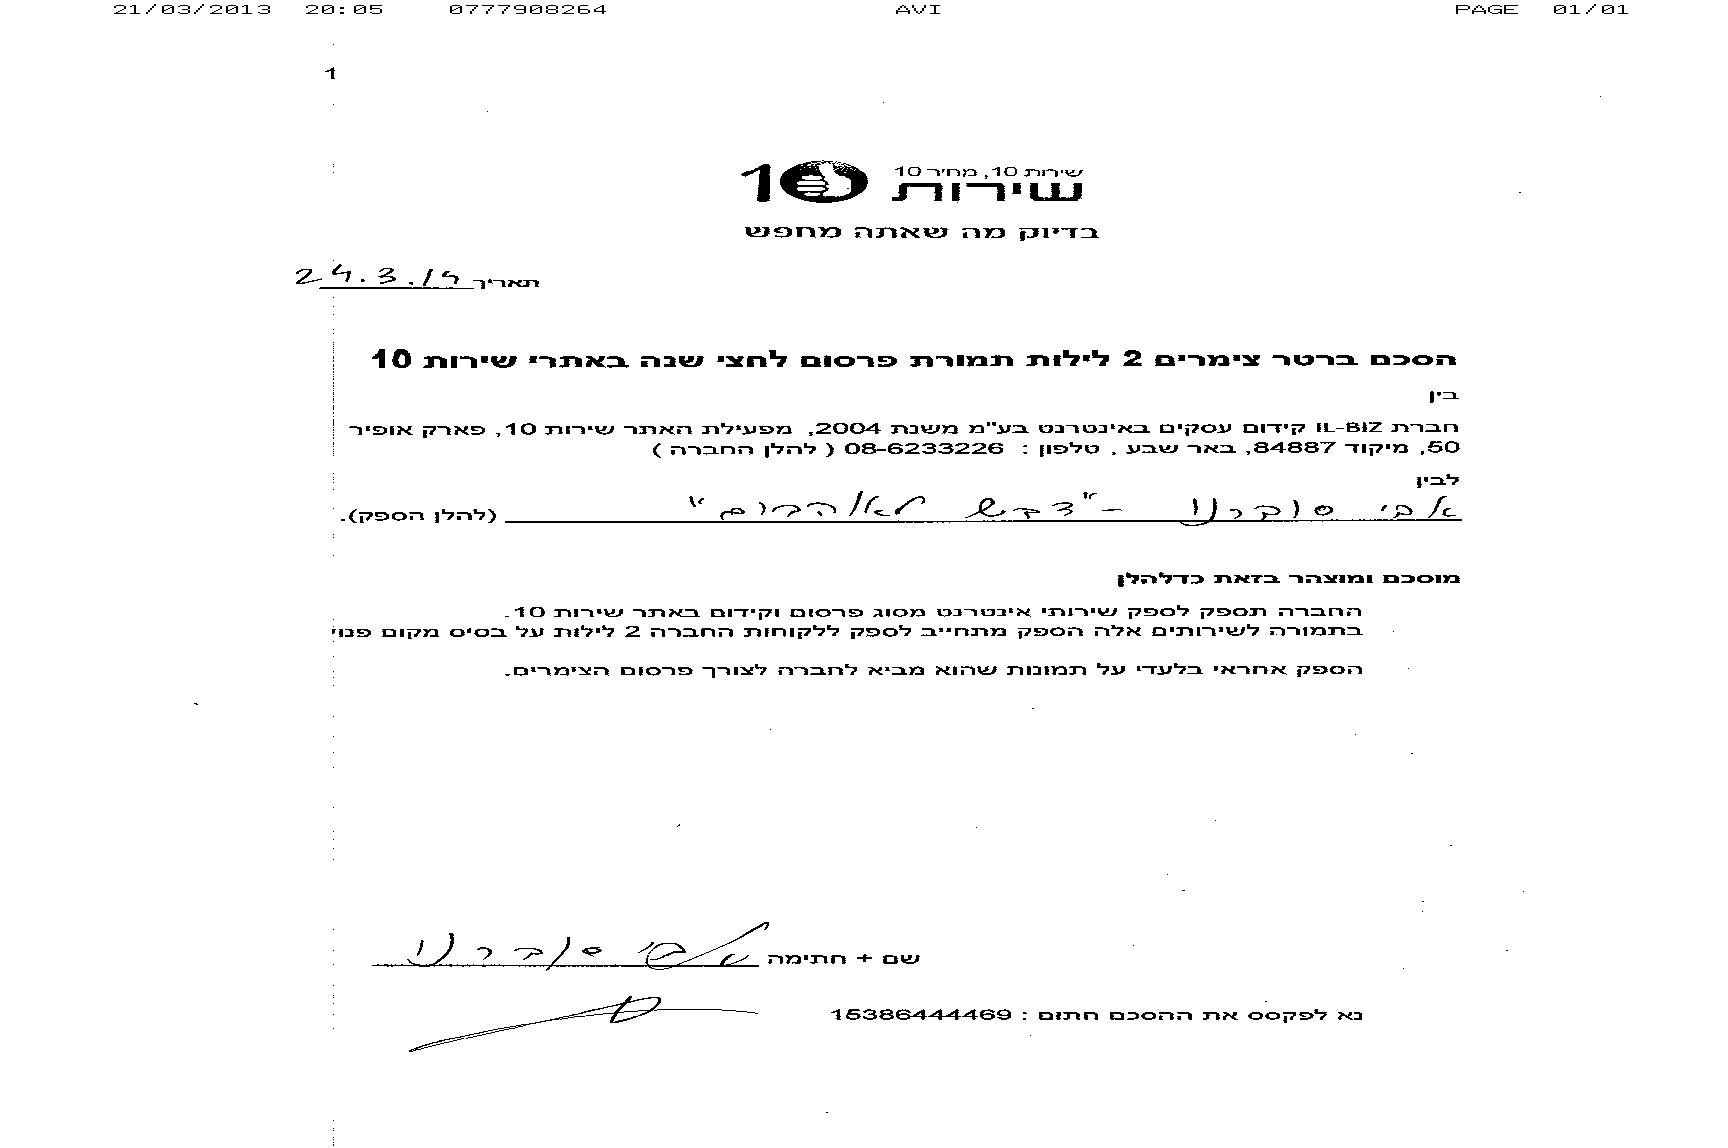 21/03/2013 20:05 0777908264 AVI PAGE 01/01
1
שירות 10, מחיר 10
שירות 10
בדיוק מה שאתה מחפש
תאריך 24.3.14
הסכם ברטר צימרים 2 לילות תמורת פרסום לחצי שנה באתרי שירות 10
בין
חברת IL-BIZ קידום עסקים באינטרנט בע"מ משנת 2004, מפעילת האתר שירות 10, פארק אופיר
50, מיקוד 84887, באר שבע , טלפון : 08-6233226 ( להלן החברה )
לבין
אבי סוברנו - "דבש לאוהבים" (להלן הספק).
מוסכם ומוצהר בזאת כדלהלן
החברה תספק לספק שירותי אינטרנט מסוג פרסום וקידום באתר שירות 10.
בתמורה לשירותים אלה הספק מתחייב לספק ללקוחות החברה 2 לילות על בסיס מקום פנוי
הספק אחראי בלעדי על תמונות שהוא מביא לחברה לצורך פרסום הצימרים.
שם + חתימה אבי סוברנו
נא לפקסס את ההסכם חתום : 15386444469